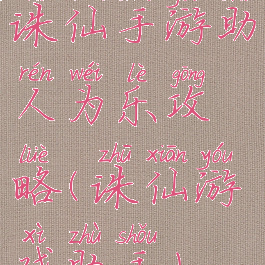 诛仙手游助
rén wéi lè gōng
人为乐攻
lüè zhū xiān yóu
略(诛仙游
xì zhù shǒu
戏助手)